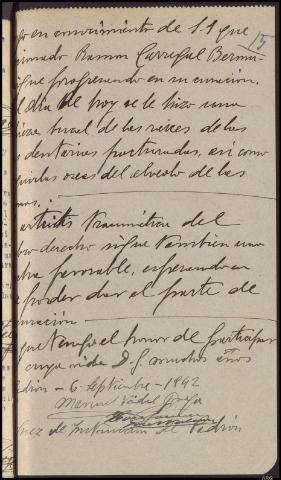 go en conocimiento de S.S que
15
ionado Ramon Carregal Bermu-
igue progresando en su curacion.
l dia de hoy se le hizo una
bucal de las raices de las
dentarias fracturadas, asi como
oseas del alveolo de las
mas.
artritis traumatica del
bro derecho sigue tambien una
cha favorable, esperando en
e poder dar el parte de
uracion.
que tengo el honor de participar
cuya vida D. g. muchos años
adrón - 6 - Septiembre - 1942
Manuel Vidal
uez de Instruccion de Padrón